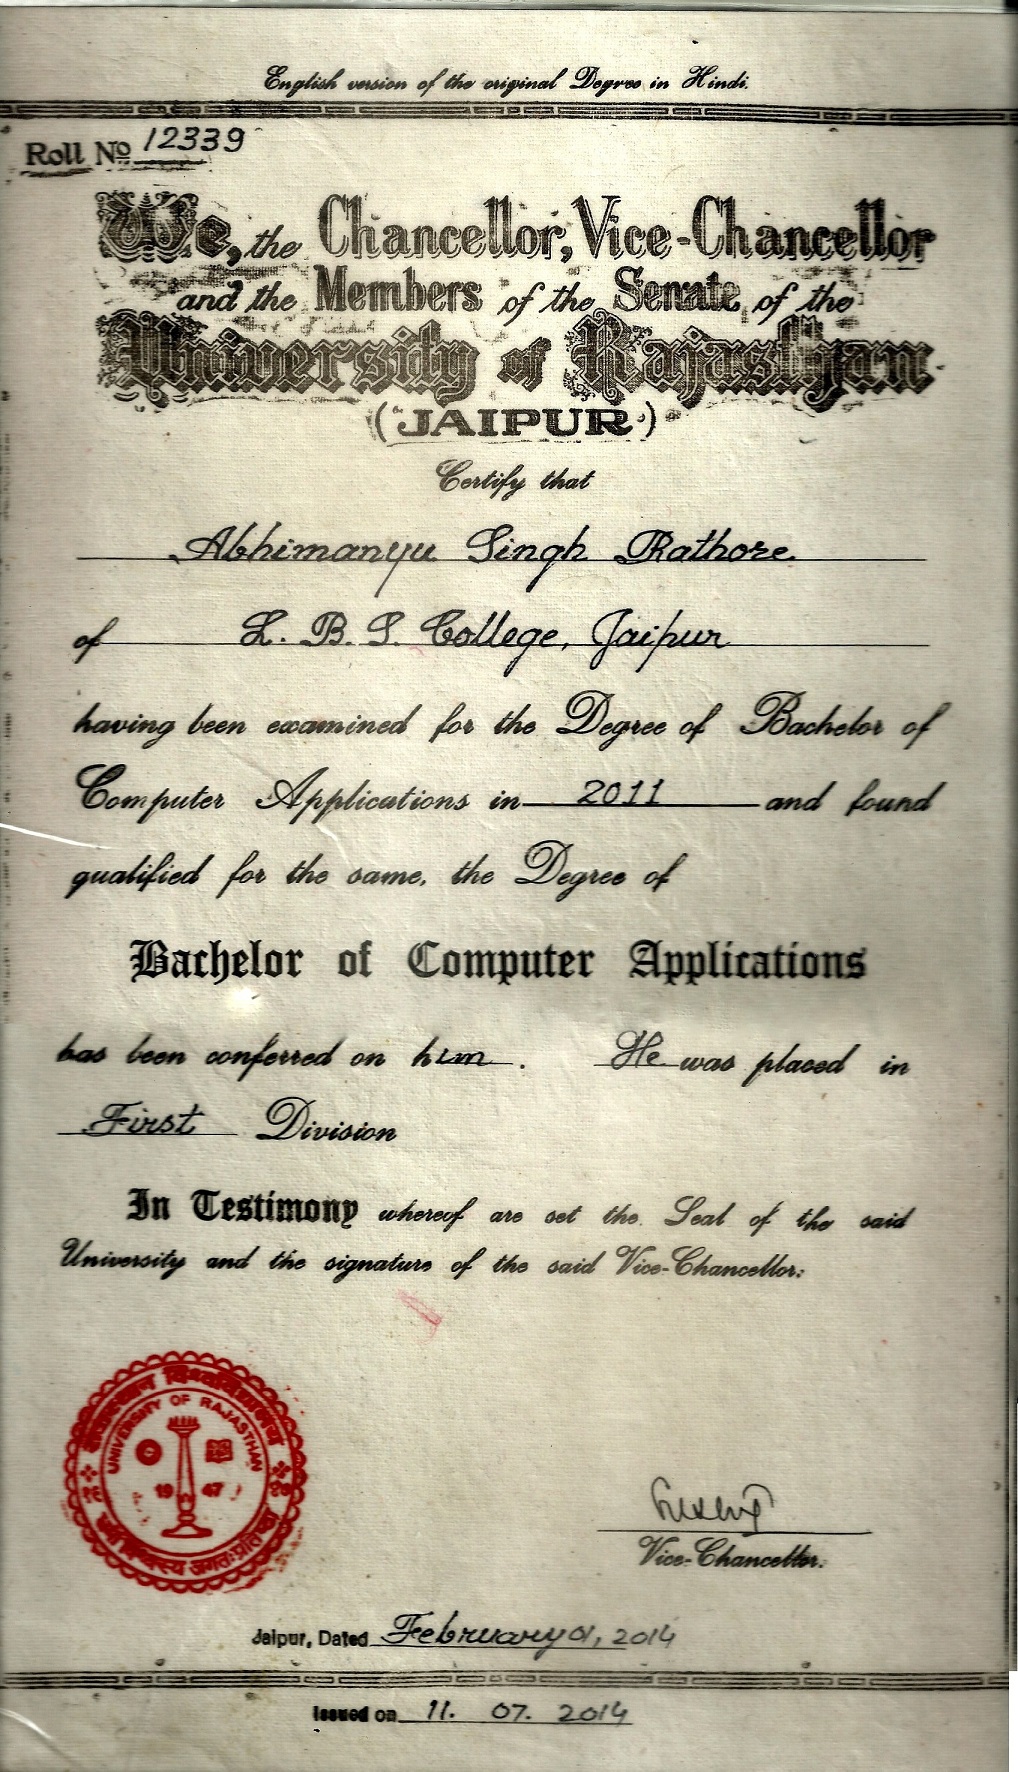 English version of the original Degree in Hindi.
Roll No 12339
We, the Chancellor, Vice-Chancellor
and the Members of the Senate of the
University of Rajasthan
(JAIPUR)
Certify that
Abhimanyu Singh Rathore
of L. B. S. College, Jaipur
having been examined for the Degree of Bachelor of
Computer Applications in 2011 and found
qualified for the same, the Degree of
Bachelor of Computer Applications
has been conferred on him. He was placed in
First Division
In Testimony whereof are set the Seal of the said
University and the signature of the said Vice-Chancellor.
राजस्थान विश्वविद्यालय
UNIVERSITY OF RAJASTHAN
1947
Vice-Chancellor.
Jaipur, Dated February 01, 2014
Issued on 11. 07. 2014